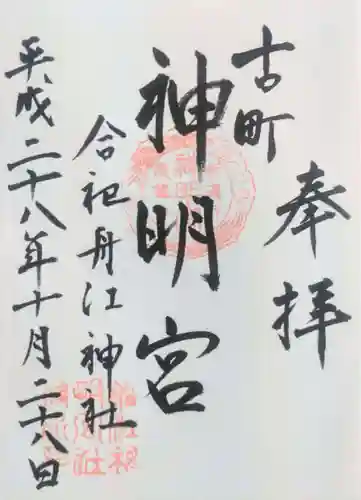 奉拝
古町
神明宮
合祀舟江神社
平成二十八年十月二十八日